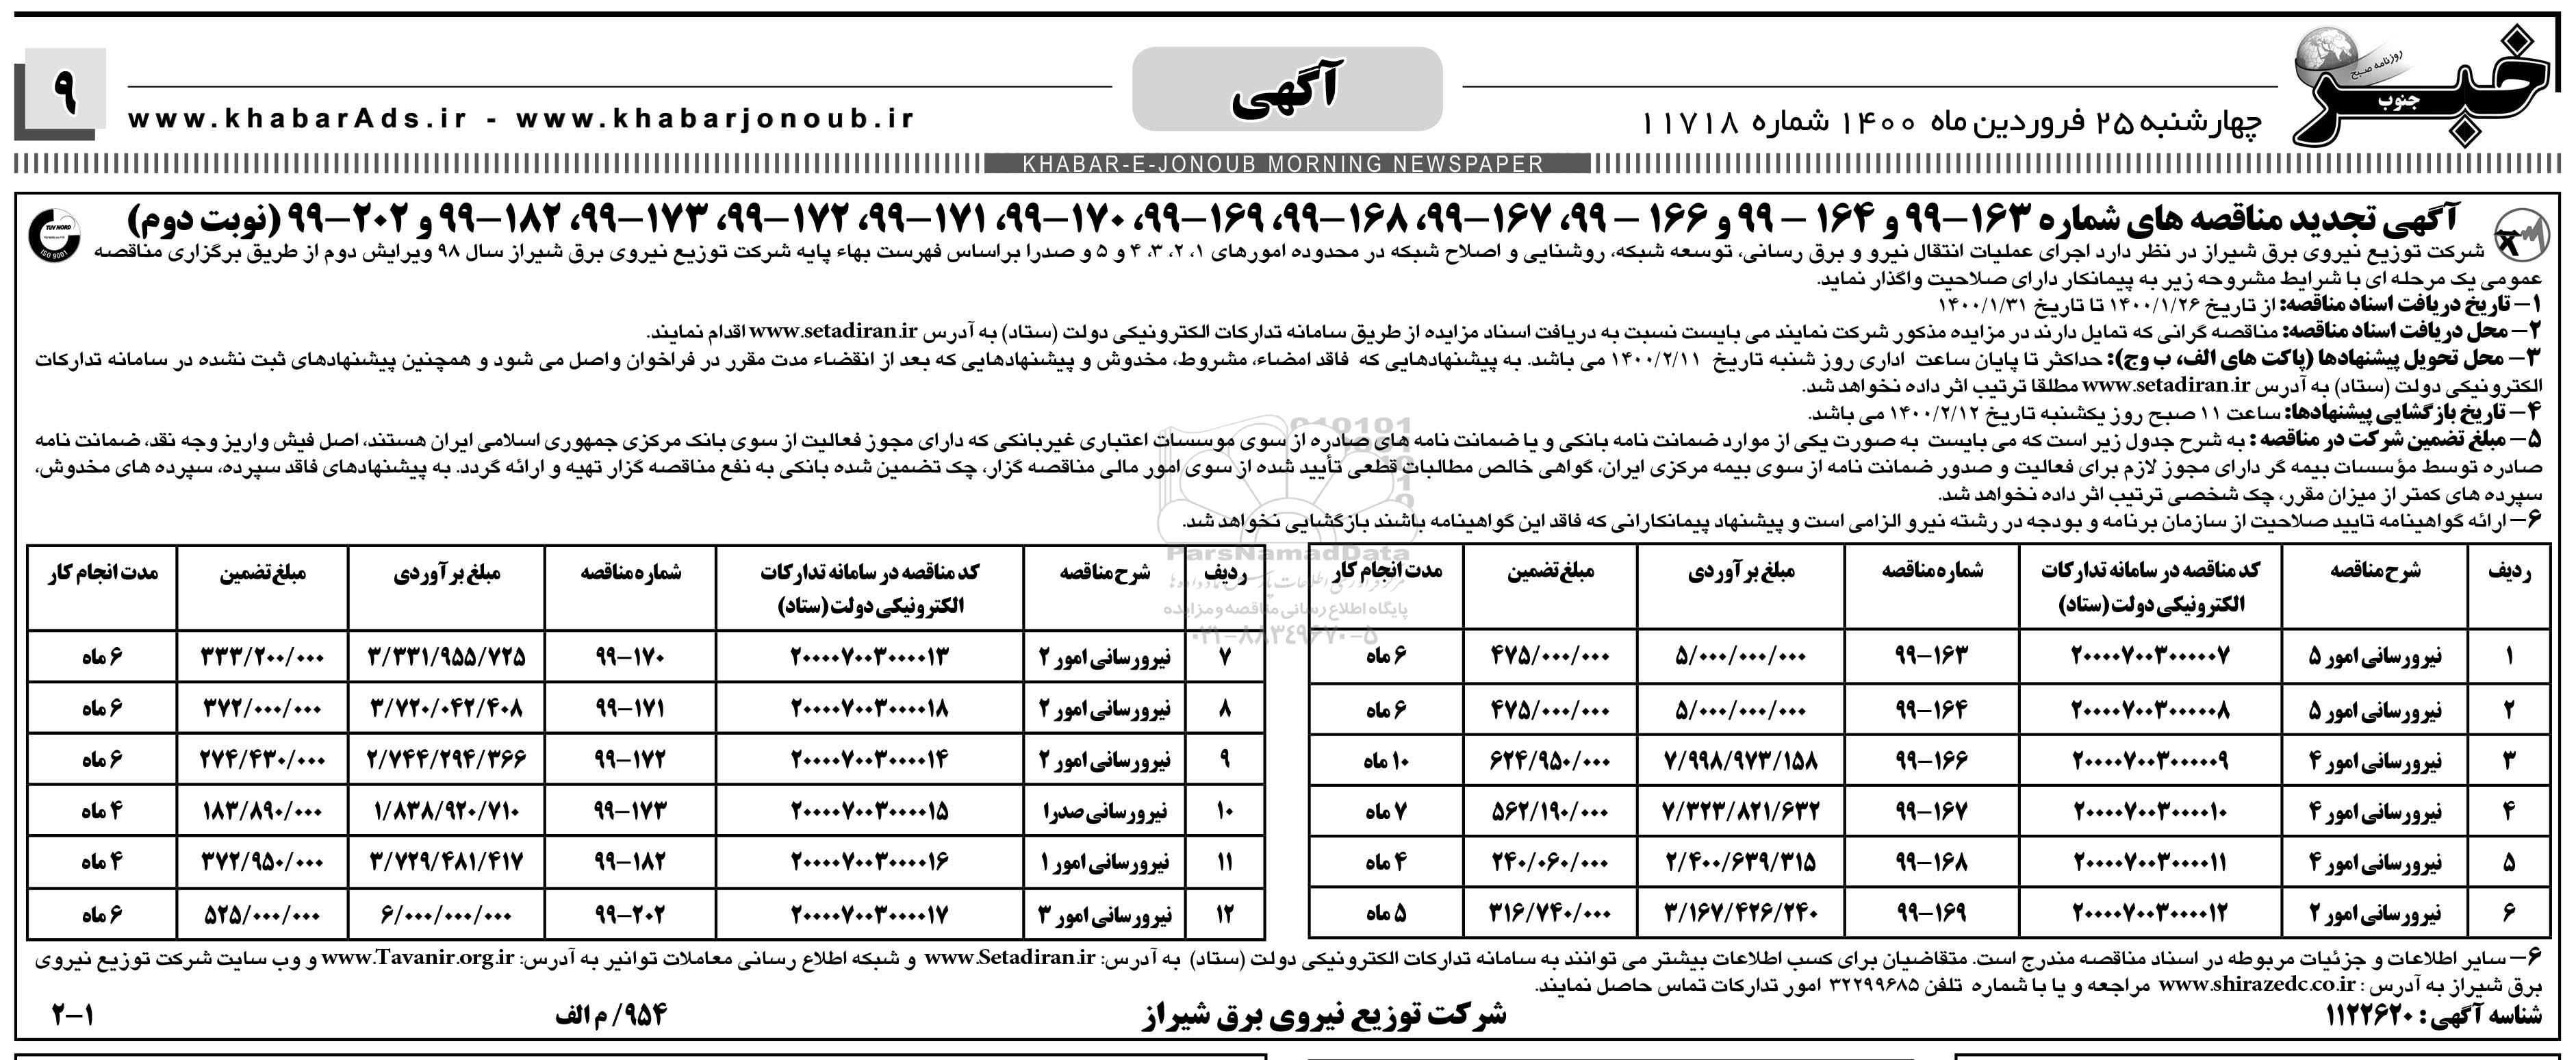 روزنامه صبح
خبر جنوب
چهارشنبه ۲۵ فروردین ماه ۱۴۰۰ شماره ۱۱۷۱۸
آگهی
www.khabarAds.ir - www.khabarjonoub.ir
۹
KHABAR-E-JONOUB MORNING NEWSPAPER
آگهی تجدید مناقصه های شماره ۱۶۳-۹۹ و ۱۶۴ - ۹۹ و ۱۶۶ - ۹۹، ۱۶۷-۹۹، ۱۶۸-۹۹، ۱۶۹-۹۹، ۱۷۰-۹۹، ۱۷۱-۹۹، ۱۷۲-۹۹، ۱۷۳-۹۹، ۱۸۲-۹۹ و ۲۰۲-۹۹ (نوبت دوم)
TUV NORD
ISO 9001
شرکت توزیع نیروی برق شیراز در نظر دارد اجرای عملیات انتقال نیرو و برق رسانی، توسعه شبکه، روشنایی و اصلاح شبکه در محدوده امورهای ۱، ۲، ۳، ۴ و ۵ و صدرا براساس فهرست بهاء پایه شرکت توزیع نیروی برق شیراز سال ۹۸ ویرایش دوم از طریق برگزاری مناقصه
عمومی یک مرحله ای با شرایط مشروحه زیر به پیمانکار دارای صلاحیت واگذار نماید.
۱- تاریخ دریافت اسناد مناقصه: از تاریخ ۱۴۰۰/۱/۲۶ تا تاریخ ۱۴۰۰/۱/۳۱
۲- محل دریافت اسناد مناقصه: مناقصه گرانی که تمایل دارند در مزایده مذکور شرکت نمایند می بایست نسبت به دریافت اسناد مزایده از طریق سامانه تدارکات الکترونیکی دولت (ستاد) به آدرس www.setadiran.ir اقدام نمایند.
۳- محل تحویل پیشنهادها (پاکت های الف، ب وج): حداکثر تا پایان ساعت اداری روز شنبه تاریخ ۱۴۰۰/۲/۱۱ می باشد. به پیشنهادهایی که فاقد امضاء، مشروط، مخدوش و پیشنهادهایی که بعد از انقضاء مدت مقرر در فراخوان واصل می شود و همچنین پیشنهادهای ثبت نشده در سامانه تدارکات
الکترونیکی دولت (ستاد) به آدرس www.setadiran.ir مطلقا ترتیب اثر داده نخواهد شد.
۴- تاریخ بازگشایی پیشنهادها: ساعت ۱۱ صبح روز یکشنبه تاریخ ۱۴۰۰/۲/۱۲ می باشد.
۵- مبلغ تضمین شرکت در مناقصه : به شرح جدول زیر است که می بایست به صورت یکی از موارد ضمانت نامه بانکی و یا ضمانت نامه های صادره از سوی موسسات اعتباری غیربانکی که دارای مجوز فعالیت از سوی بانک مرکزی جمهوری اسلامی ایران هستند، اصل فیش واریز وجه نقد، ضمانت نامه
صادره توسط مؤسسات بیمه گر دارای مجوز لازم برای فعالیت و صدور ضمانت نامه از سوی بیمه مرکزی ایران، گواهی خالص مطالبات قطعی تأیید شده از سوی امور مالی مناقصه گزار، چک تضمین شده بانکی به نفع مناقصه گزار تهیه و ارائه گردد. به پیشنهادهای فاقد سپرده، سپرده های مخدوش،
سپرده های کمتر از میزان مقرر، چک شخصی ترتیب اثر داده نخواهد شد.
۶- ارائه گواهینامه تایید صلاحیت از سازمان برنامه و بودجه در رشته نیرو الزامی است و پیشنهاد پیمانکارانی که فاقد این گواهینامه باشند بازگشایی نخواهد شد.
ParsNamadData
پایگاه اطلاع رسانی مناقصه و مزایده
۰۲۱-۸۸۳۴۹۶۷۰-۵
ردیف شرح مناقصه کد مناقصه در سامانه تدارکات الکترونیکی دولت (ستاد) شماره مناقصه مبلغ برآوردی مبلغ تضمین مدت انجام کار
۱ نیرورسانی امور ۵ ۲۰۰۰۰۷۰۰۳۰۰۰۰۰۷ ۹۹-۱۶۳ ۵/۰۰۰/۰۰۰/۰۰۰ ۴۷۵/۰۰۰/۰۰۰ ۶ ماه
۲ نیرورسانی امور ۵ ۲۰۰۰۰۷۰۰۳۰۰۰۰۰۸ ۹۹-۱۶۴ ۵/۰۰۰/۰۰۰/۰۰۰ ۴۷۵/۰۰۰/۰۰۰ ۶ ماه
۳ نیرورسانی امور ۴ ۲۰۰۰۰۷۰۰۳۰۰۰۰۰۹ ۹۹-۱۶۶ ۷/۹۹۸/۹۷۳/۱۵۸ ۶۲۴/۹۵۰/۰۰۰ ۱۰ ماه
۴ نیرورسانی امور ۴ ۲۰۰۰۰۷۰۰۳۰۰۰۰۱۰ ۹۹-۱۶۷ ۷/۳۲۳/۸۲۱/۶۳۲ ۵۶۲/۱۹۰/۰۰۰ ۷ ماه
۵ نیرورسانی امور ۴ ۲۰۰۰۰۷۰۰۳۰۰۰۰۱۱ ۹۹-۱۶۸ ۲/۴۰۰/۶۳۹/۳۱۵ ۲۴۰/۰۶۰/۰۰۰ ۴ ماه
۶ نیرورسانی امور ۲ ۲۰۰۰۰۷۰۰۳۰۰۰۰۱۲ ۹۹-۱۶۹ ۳/۱۶۷/۴۲۶/۲۴۰ ۳۱۶/۷۴۰/۰۰۰ ۵ ماه
ردیف شرح مناقصه کد مناقصه در سامانه تدارکات الکترونیکی دولت (ستاد) شماره مناقصه مبلغ برآوردی مبلغ تضمین مدت انجام کار
۷ نیرورسانی امور ۲ ۲۰۰۰۰۷۰۰۳۰۰۰۰۱۳ ۹۹-۱۷۰ ۳/۳۳۱/۹۵۵/۷۲۵ ۳۳۳/۲۰۰/۰۰۰ ۶ ماه
۸ نیرورسانی امور ۲ ۲۰۰۰۰۷۰۰۳۰۰۰۰۱۸ ۹۹-۱۷۱ ۳/۷۲۰/۰۴۲/۴۰۸ ۳۷۲/۰۰۰/۰۰۰ ۶ ماه
۹ نیرورسانی امور ۲ ۲۰۰۰۰۷۰۰۳۰۰۰۰۱۴ ۹۹-۱۷۲ ۲/۷۴۴/۲۹۴/۳۶۶ ۲۷۴/۴۳۰/۰۰۰ ۶ ماه
۱۰ نیرورسانی صدرا ۲۰۰۰۰۷۰۰۳۰۰۰۰۱۵ ۹۹-۱۷۳ ۱/۸۳۸/۹۲۰/۷۱۰ ۱۸۳/۸۹۰/۰۰۰ ۴ ماه
۱۱ نیرورسانی امور ۱ ۲۰۰۰۰۷۰۰۳۰۰۰۰۱۶ ۹۹-۱۸۲ ۳/۷۲۹/۴۸۱/۴۱۷ ۳۷۲/۹۵۰/۰۰۰ ۴ ماه
۱۲ نیرورسانی امور ۳ ۲۰۰۰۰۷۰۰۳۰۰۰۰۱۷ ۹۹-۲۰۲ ۶/۰۰۰/۰۰۰/۰۰۰ ۵۲۵/۰۰۰/۰۰۰ ۶ ماه
۶- سایر اطلاعات و جزئیات مربوطه در اسناد مناقصه مندرج است. متقاضیان برای کسب اطلاعات بیشتر می توانند به سامانه تدارکات الکترونیکی دولت (ستاد) به آدرس: www.Setadiran.ir و شبکه اطلاع رسانی معاملات توانیر به آدرس: www.Tavanir.org.ir و وب سایت شرکت توزیع نیروی
برق شیراز به آدرس : www.shirazedc.co.ir مراجعه و یا با شماره تلفن ۳۲۲۹۹۶۸۵ امور تدارکات تماس حاصل نمایند.
شناسه آگهی : ۱۱۲۲۶۲۰
شرکت توزیع نیروی برق شیراز
۹۵۴/ م الف
۲-۱